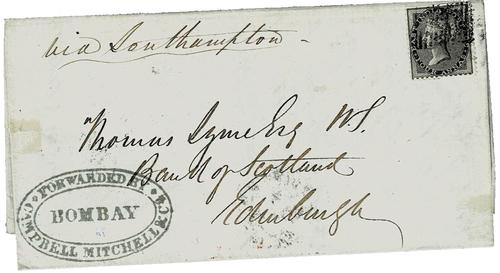 via Southampton
Thomas Syme Esq W.S.
Bank of Scotland
Edinburgh
FORWARDED BY
BOMBAY
CAMPBELL MITCHELL & Co